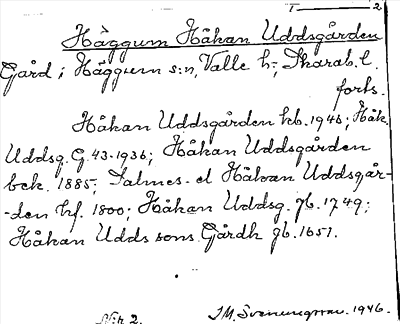 T 2
Häggum Håkan Uddsgården
Gård i Häggum s:n, Valle h:, Skarab. l.
forts.
Håkan Uddsgården kb. 1946; Håk.
Uddsg. G. 43. 1936; Håkan Uddsgården
bek. 1885; Salmes- el Håkan Uddsgår-
-den hf. 1800; Håkan Uddsg. jb. 1749;
Håkan Udds sons Gårdh jb. 1651.
N:r 2. J M. 1946.